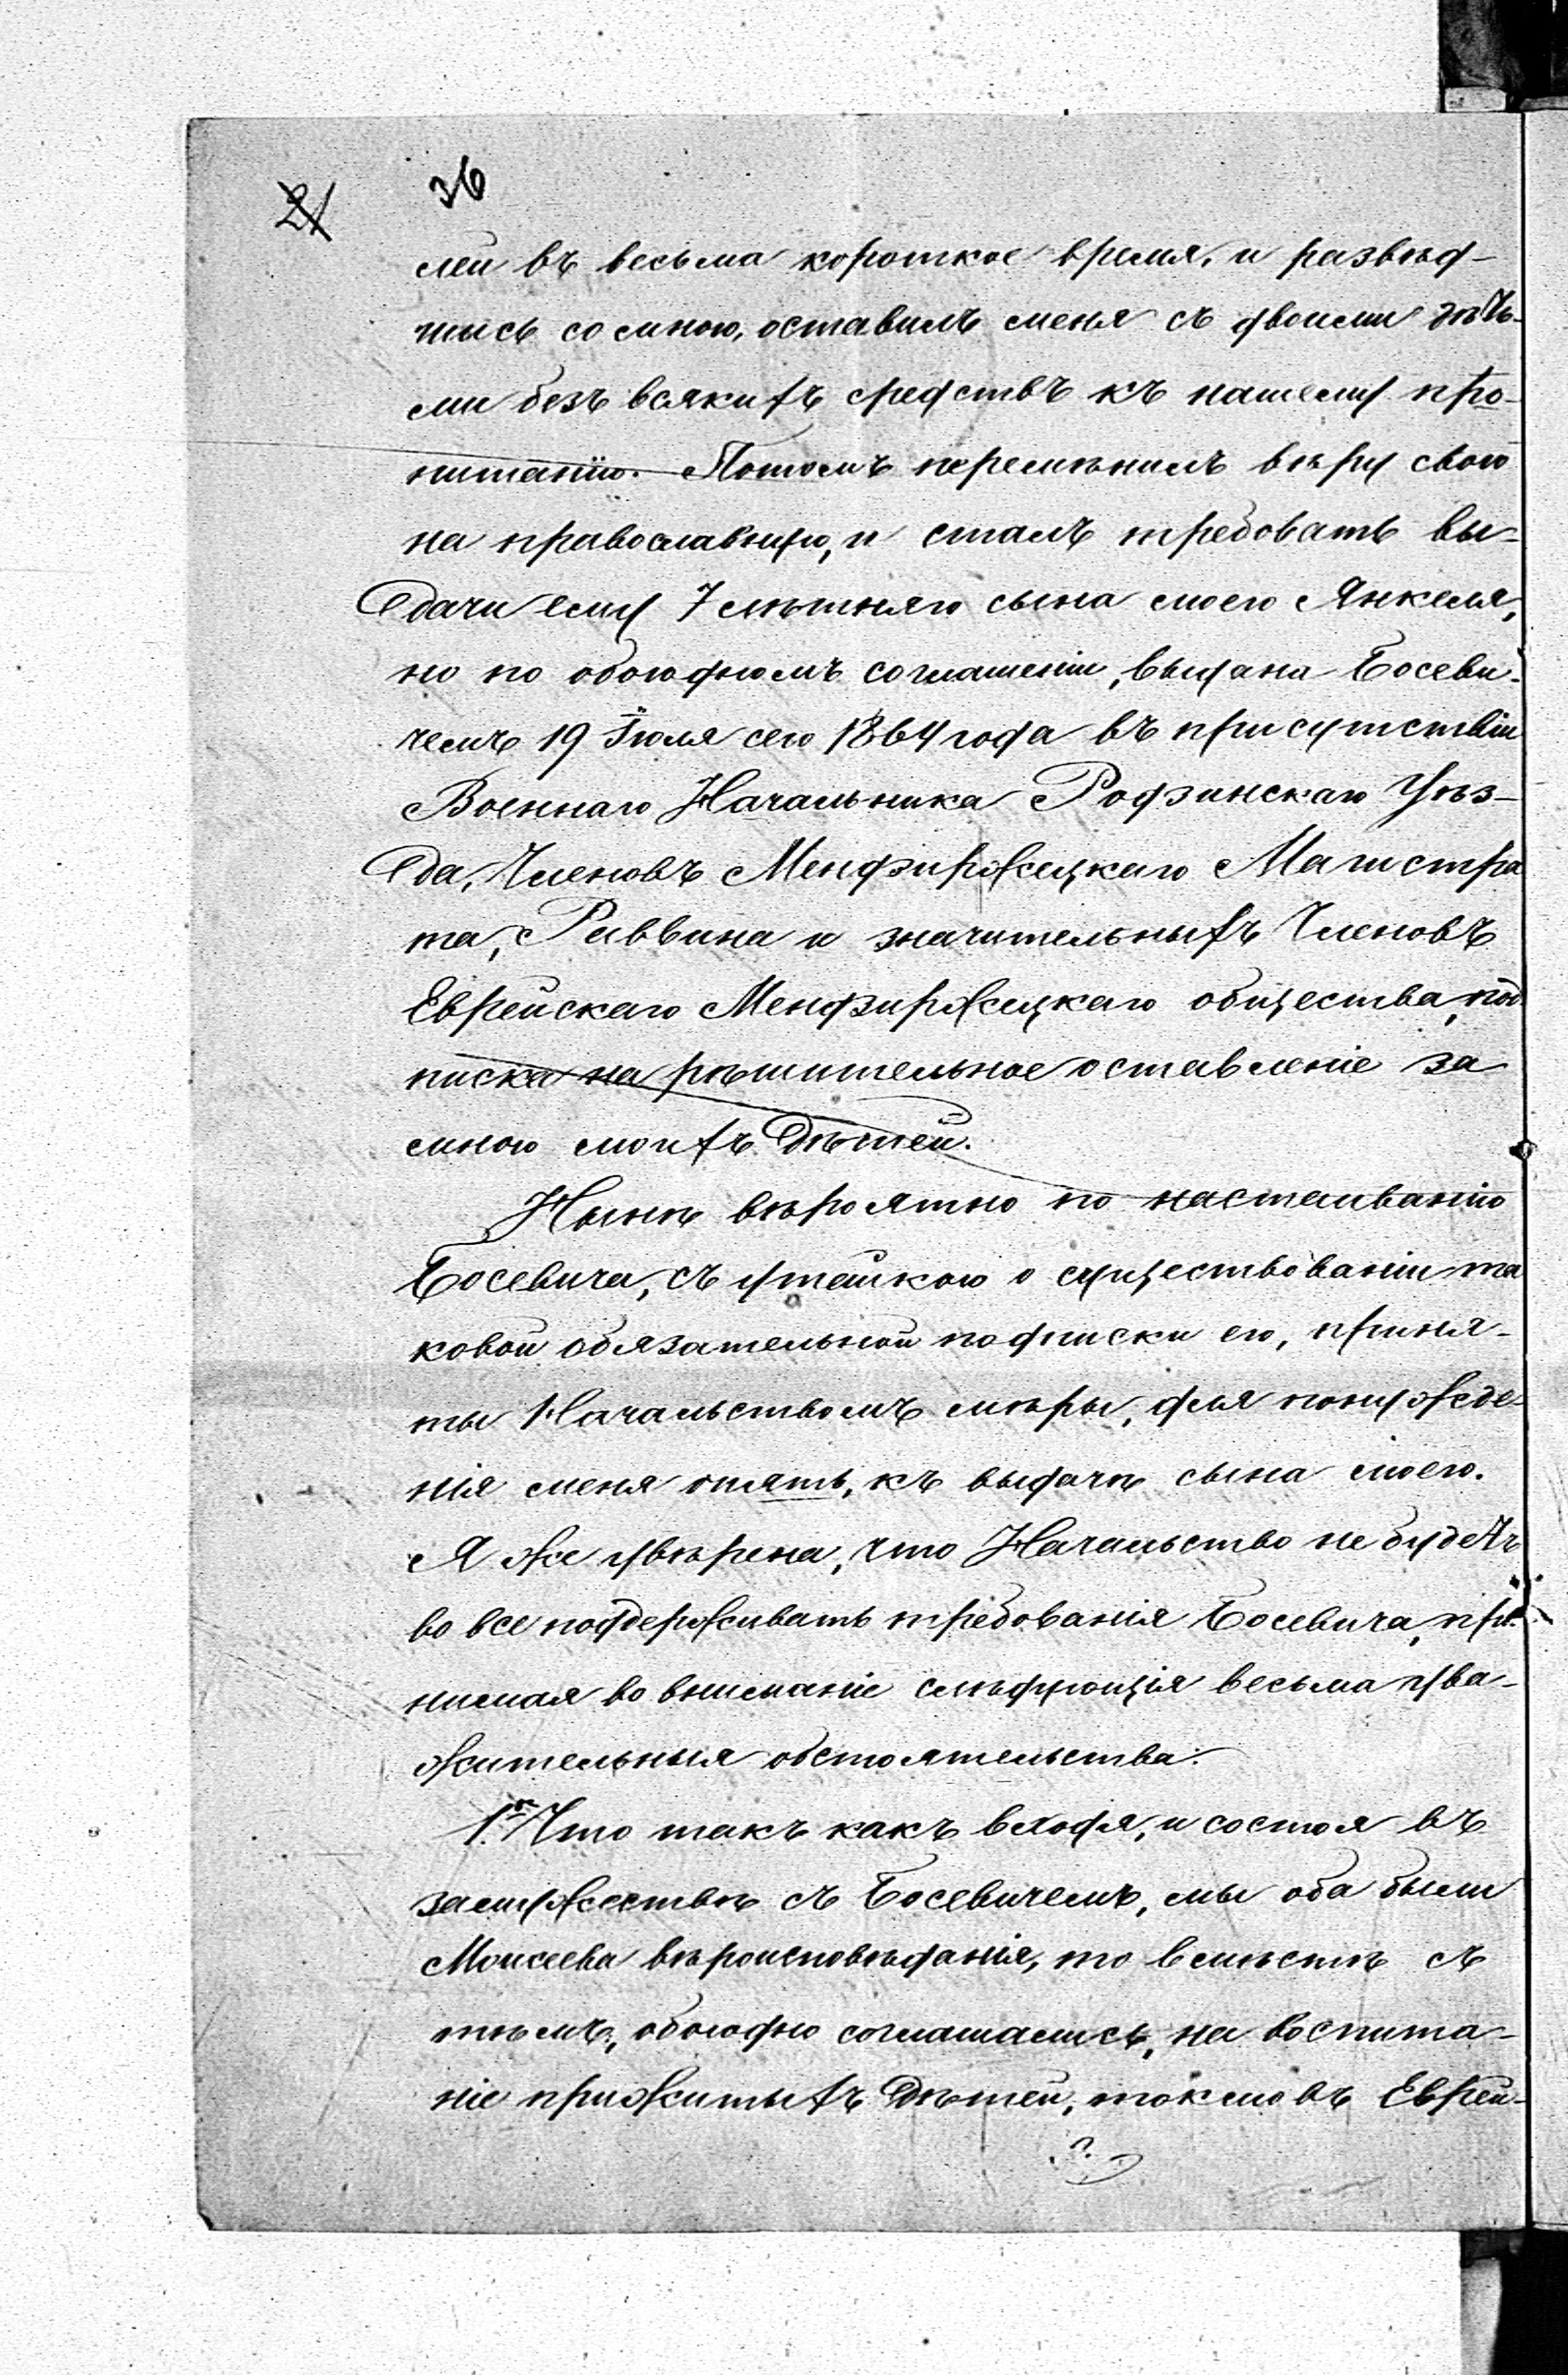 36
21
лей въ весьма короткое время, и развед-
шись со мною, оставилъ меня съ двоими дѣть-
ми безъ всякихъ средствъ къ нашему про-
питанію. Потомъ перемѣнилъ вѣру свою
на православную, и сталъ требовать вы-
дачи ему 7 лѣтняго сына моего Янкеля,
но по обоюдномъ соглашеніи, выдана Босеви-
чемъ 19 Іюля сего 1864 года въ присутствіи
Военнаго Начальника Родзинскаго Уѣз-
да, Членовъ Мендзиржецкаго Магистра
та, Раввина и значительныхъ Членовъ
Еврейскаго Мендзиржецкаго общества, под
писка на рѣшительное оставленіе за
мною моихъ Дѣтей.
Нынѣ вѣроятно по настаиванію
Босевича, съ утайкою о существованіи та
ковой обязательной подписки его, приня-
ты Начальствомъ мѣры, для понужде-
нія меня опять, къ выдачѣ сына моего.
Я же увѣрена, что Начальство не будетъ
во все поддерживать требованія Босевича, при-
нимая во вниманіе слѣдующія весьма ува-
жительныя обстоятельства:
1. Что такъ какъ входя, и состоя въ
замужествѣ съ Босевичемъ, мы оба были
Моисеева вѣроисповѣданія, то вмѣстѣ съ
тѣмъ, обоюдно соглашались, на воспита-
ніе прижитыхъ Дѣтей, токмо въ Еврей-